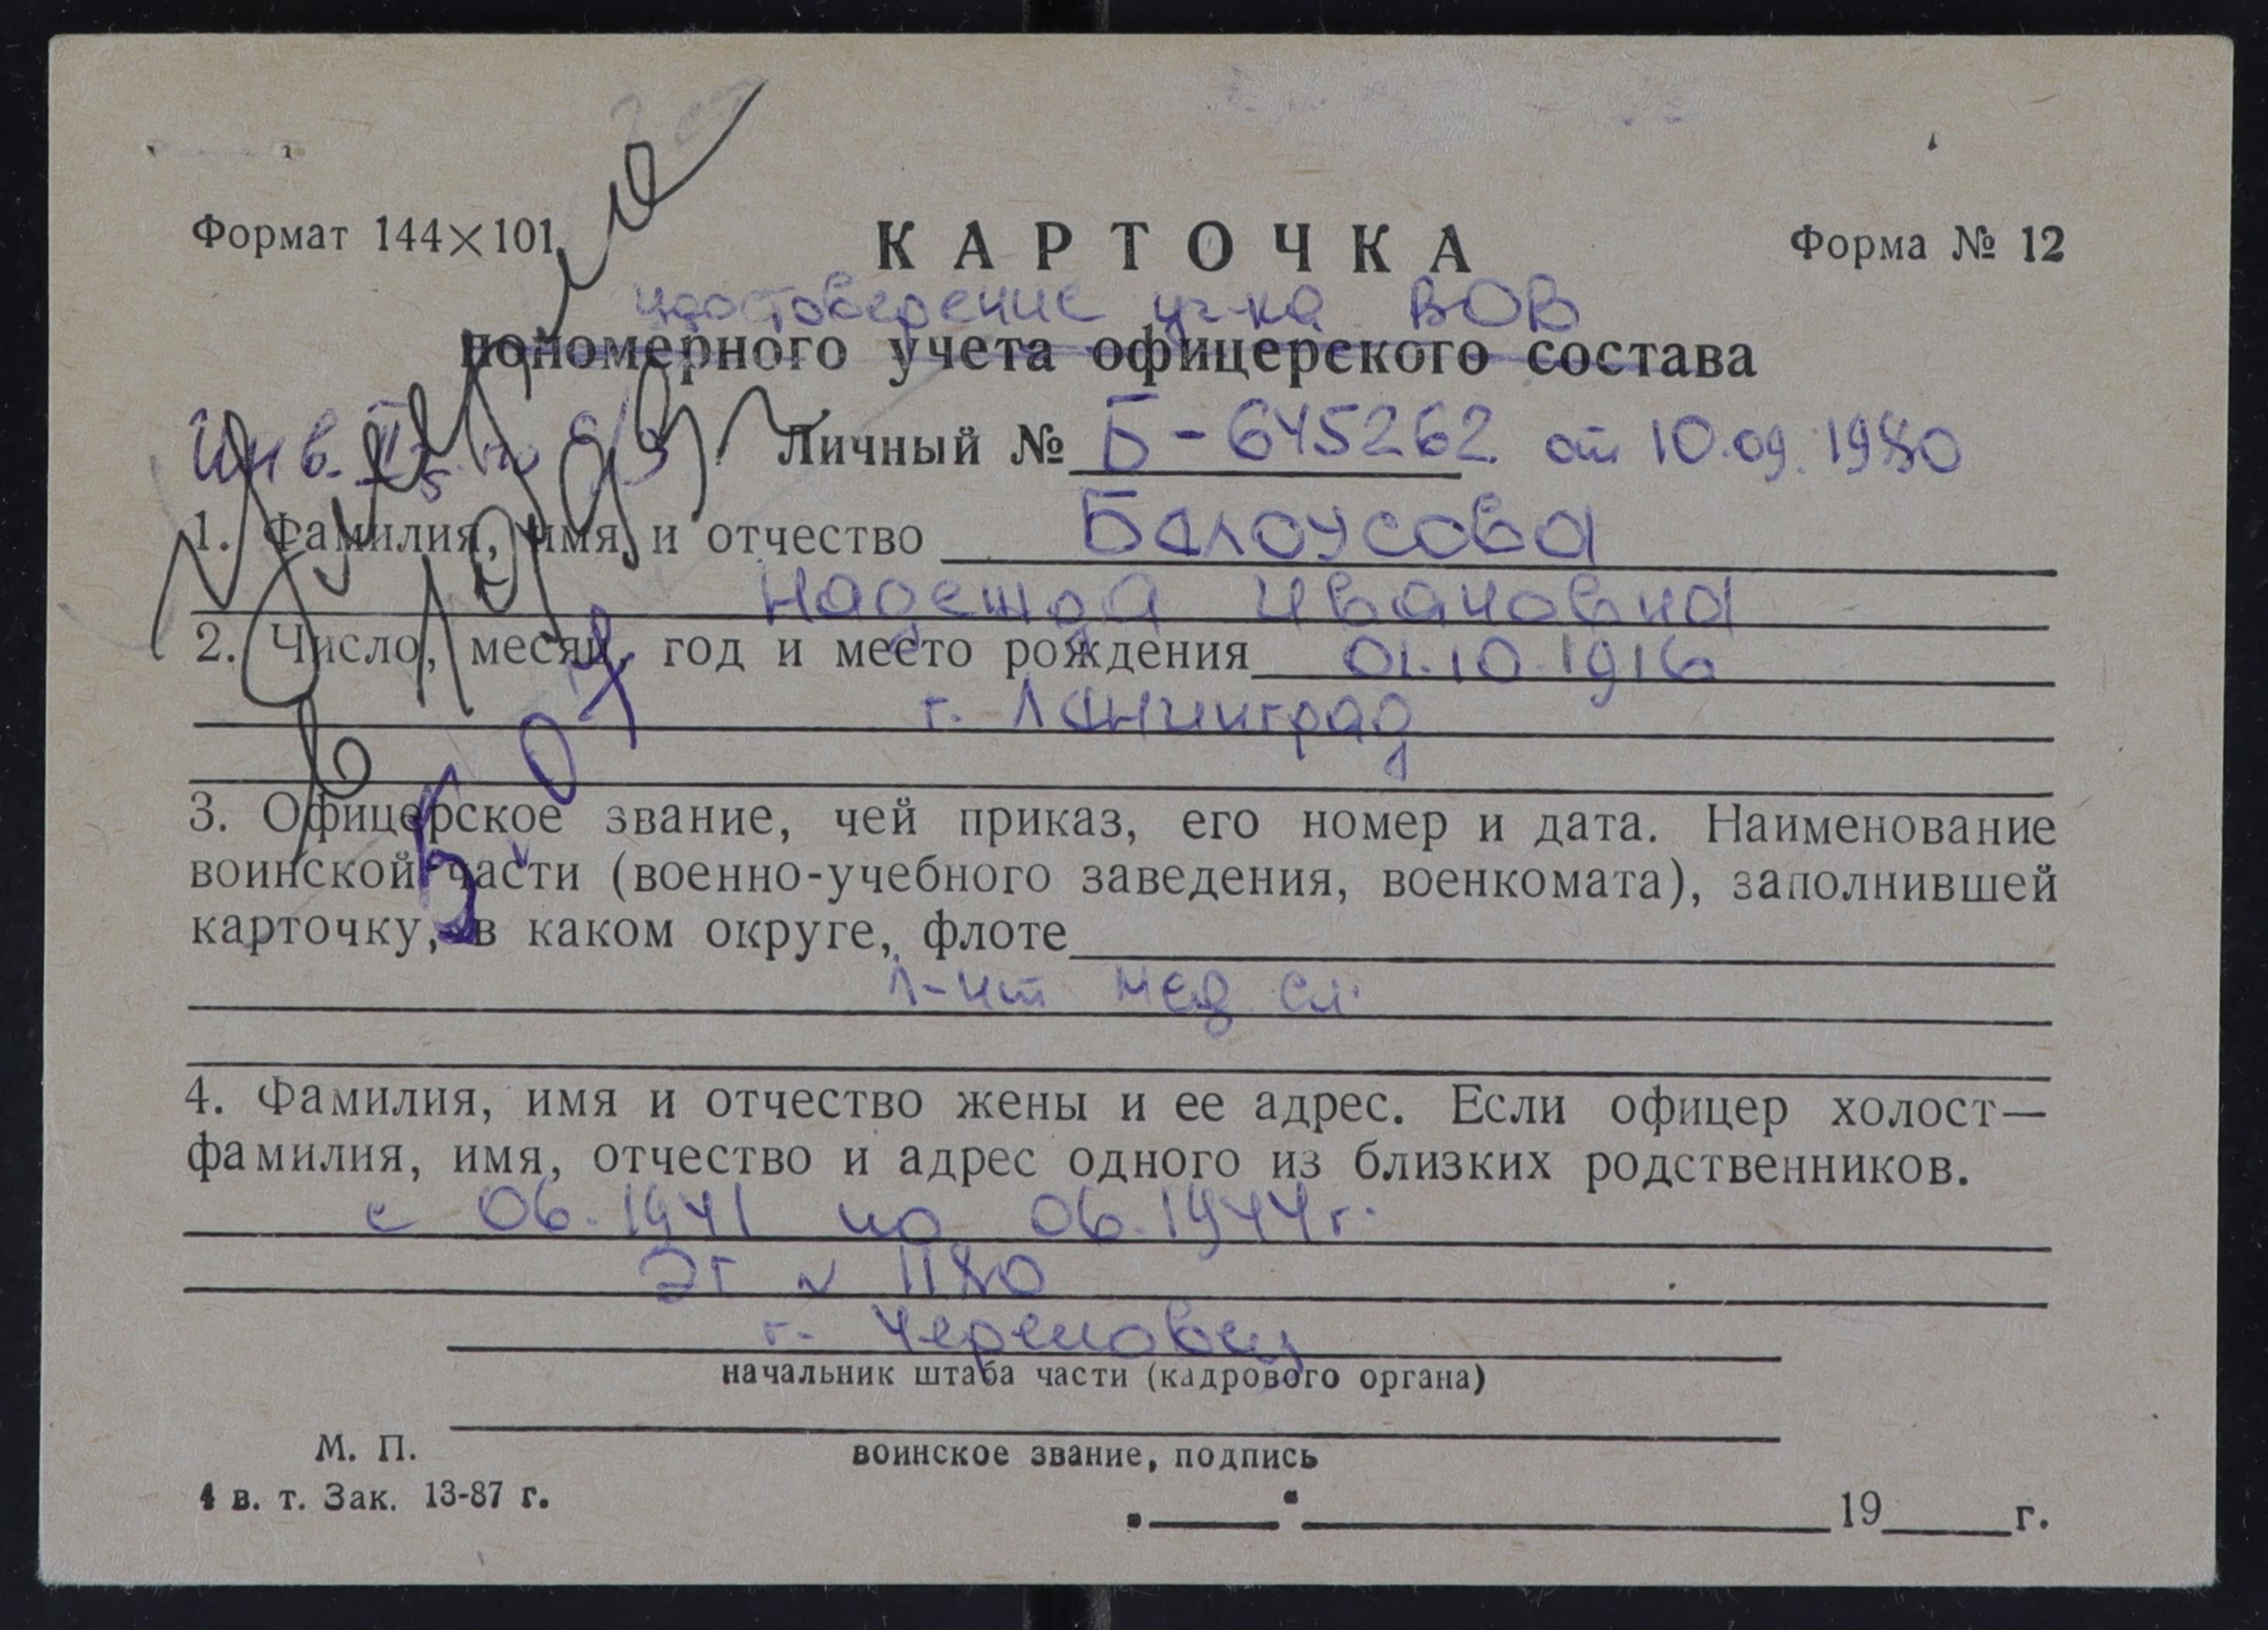 Формат 144×101
КАРТОЧКА
Форма № 12
удостоверение уч-ка ВОВ
пономерного учета офицерского состава
Инв. II
Личный № Б-645262 от 10.09.1980
1. Фамилия, имя и отчество Балоусова
Надежда Ивановна
2. Число, месяц, год и место рождения 01.10.1916
г. Ленинград
3. Офицерское звание, чей приказ, его номер и дата. Наименование
воинской части (военно-учебного заведения, военкомата), заполнившей
карточку, в каком округе, флоте
л-нт мед. сл.
4. Фамилия, имя и отчество жены и ее адрес. Если офицер холост—
фамилия, имя, отчество и адрес одного из близких родственников.
с 06.1941 по 06.1944 г.
ЭГ № 1180
г. Череповец
начальник штаба части (кадрового органа)
М. П.
воинское звание, подпись
4 в. т. Зак. 13-87 г.
19 г.